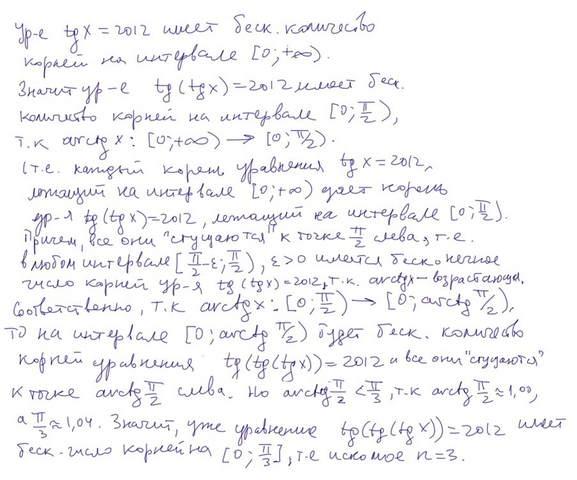 Ур-е tg x = 2012 имеет беск. количество
корней на интервале [0; +∞).
Значит ур-е tg(tgx) = 2012 имеет беск.
количество корней на интервале [0; π/2),
т.к arctg x : [0; +∞) → [0; π/2).
(т.е. каждый корень уравнения tg x = 2012,
лежащий на интервале [0; +∞) дает корень
ур-я tg(tgx) = 2012, лежащий на интервале [0; π/2).
Причем, все они "сгущаются" к точке π/2 слева, т.е.
в любом интервале [π/2 - ε; π/2), ε > 0 имеется бесконечное
число корней ур-я tg(tgx) = 2012, т.к. arctgx - возрастающая.
Соответственно, т.к arctgx : [0; π/2) → [0; arctg π/2),
то на интервале [0; arctg π/2) будет беск. количество
корней уравнения tg(tg(tgx)) = 2012 и все они "сгущаются"
к точке arctg π/2 слева. Но arctg π/2 < π/3, т.к arctg π/2 ≈ 1,00,
а π/3 ≈ 1,04. Значит, уже уравнение tg(tg(tgx)) = 2012 имеет
беск. число корней на [0; π/3], т.е искомое n = 3.